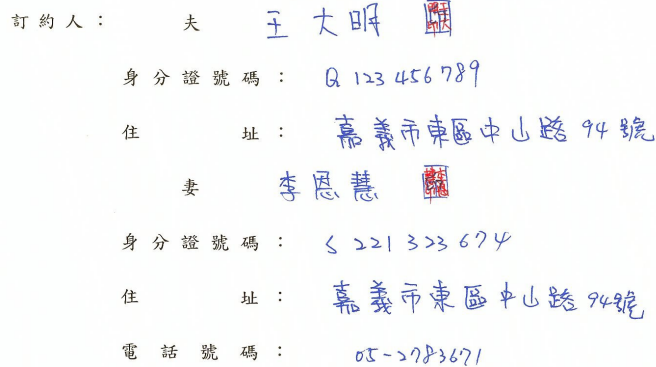 訂約人： 夫 王大明
身分證號碼： Q123456789
住址： 嘉義市東區中山路94號
妻 李恩慧
身分證號碼： S221323674
住址： 嘉義市東區中山路94號
電話號碼： 05-2783671